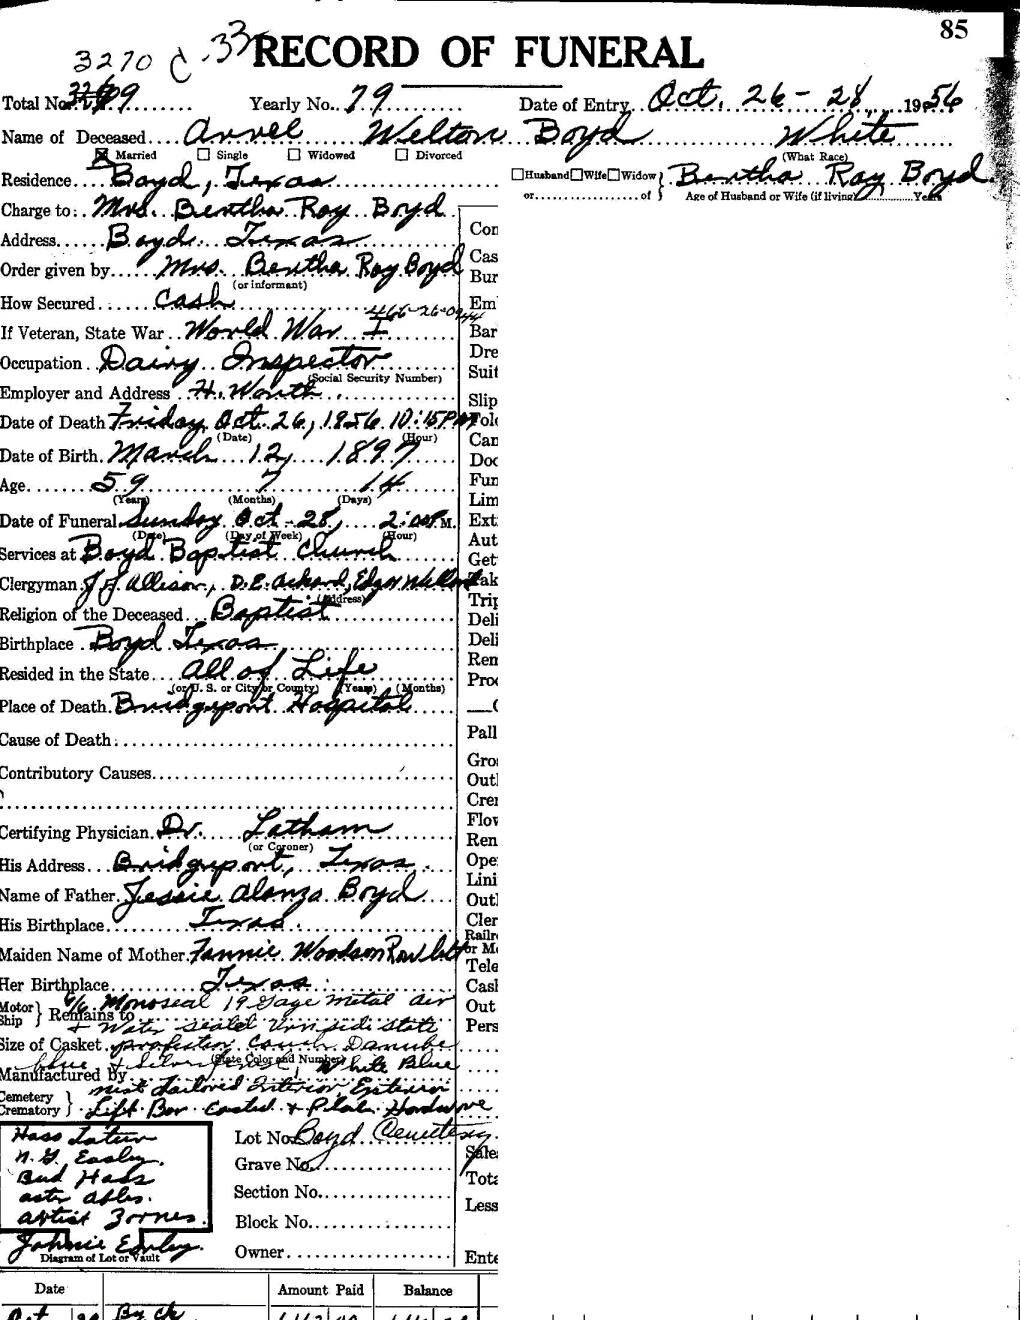 85
3270 C .33 RECORD OF FUNERAL
Total No. ........ Yearly No.. 79 ........ Date of Entry.. Oct. 26 - 28, 1956
Name of Deceased.... Arvel Welton Boyd White
Married Single Widowed Divorced (What Race)
Residence.... Boyd, Texas Husband Wife Widow } Bertha Ray Boyd
or..................of } Age of Husband or Wife (if living) ........ Years
Charge to: Mrs. Bertha Ray Boyd
Con
Address...... Boyd, Texas
Cas
Order given by...... Mrs. Bertha Ray Boyd
Bur
(or informant)
How Secured...... Cash
Em
466-26-0944
If Veteran, State War.. World War I
Bar
Dre
Occupation.. Dairy Inspector
Suit
(Social Security Number)
Employer and Address.. Ft. Worth
Slip
Date of Death Friday, Oct. 26, 1956 10:15 PM
(Date) (Hour)
Can
Date of Birth. March 12, 1897
Doc
Age...... 59 7 14
Fun
(Years) (Months) (Days)
Lim
Date of Funeral Sunday Oct - 28, 2:00 P.M.
Ext
(Date) (Day of Week) (Hour)
Aut
Services at Boyd Baptist Church
Get
Clergyman J. J. Allison, D.E. Ackard, Edgar
(Address)
Trip
Religion of the Deceased... Baptist
Deli
Birthplace.. Boyd Texas
Deli
Resided in the State.... All of Life
Ren
(or U. S. or City or County) (Years) (Months)
Proc
Place of Death. Bridgeport Hospital
Cause of Death:
Pall
Contributory Causes
Gros
Outl
Crer
Flov
Certifying Physician. Dr. Latham
Ren
(or Coroner)
His Address... Bridgeport, Texas
Ope
Lini
Name of Father. Jessie Alonza Boyd
Outl
His Birthplace Texas
Cler
Railr
Maiden Name of Mother. Fannie Woodson Rowlett
or Mo
Tele
Her Birthplace Texas
Cash
Motor Ship } Remains to 6/6 Monoseal 19 Gage Metal air
Out
+ Water sealed
Pers
Size of Casket. Couch Danube
Blue + Silver White Blue
(State Color and Number)
Manufactured By
Tailored Interior Extension
Cemetery Crematory } Lift Bar Casket + Hardware
Lot No. Boyd Cemetery
N. G. Easley.
Grave No.
Sales
Bud Hass
Tota
Section No.
Artist Zornes.
Less
Block No.
Johnie Easley.
Diagram of Lot or Vault
Owner
Ente
Date Amount Paid Balance
Oct By Ck